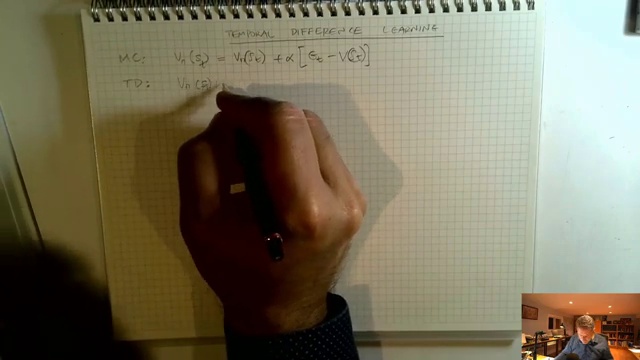 TEMPORAL DIFFERENCE LEARNING
MC: Vπ(St) = Vπ(St) + α [Gt − V(St)]
TD: Vπ(St)